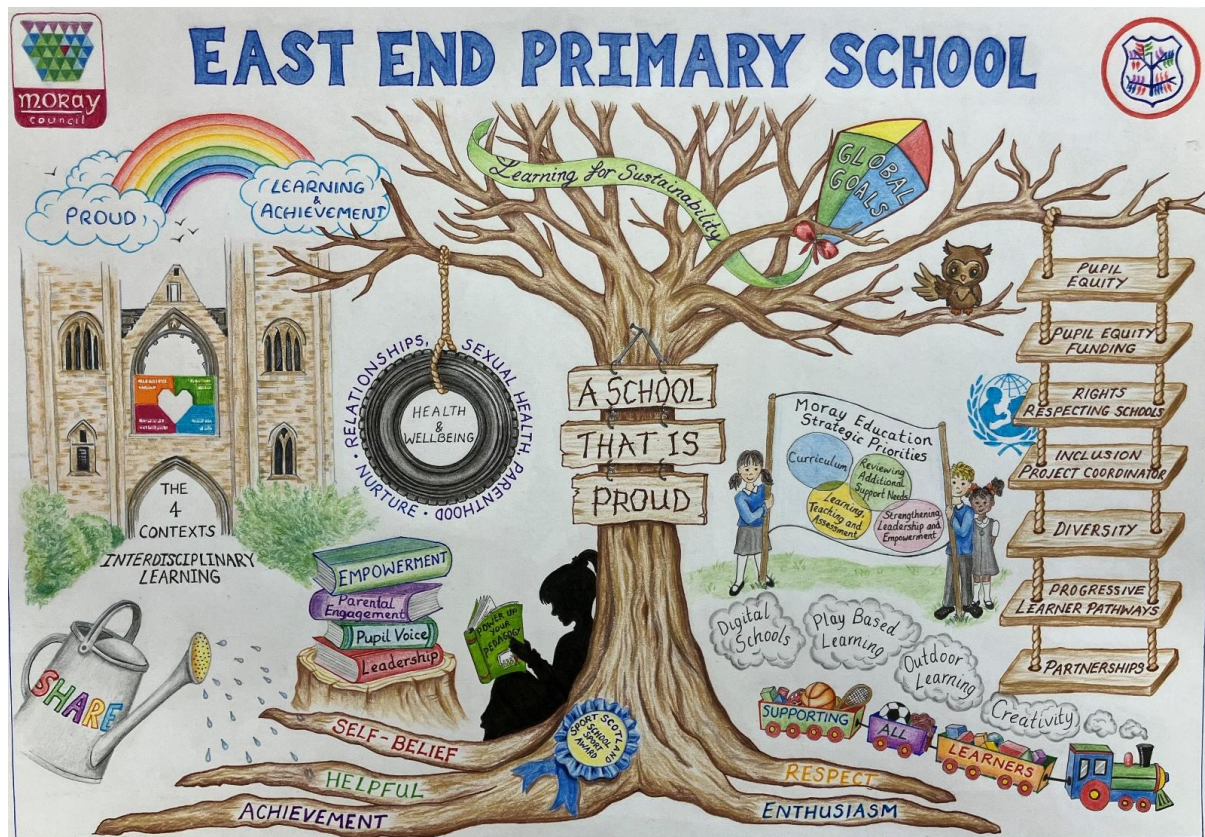 EAST END PRIMARY SCHOOL
moray
council
PROUD
LEARNING
&
ACHIEVEMENT
Learning for Sustainability
GLOBAL
GOALS
THE
4
CONTEXTS
INTERDISCIPLINARY
LEARNING
RELATIONSHIPS, SEXUAL HEALTH, PARENTHOOD • NURTURE •
HEALTH
&
WELLBEING
A SCHOOL
THAT IS
PROUD
Moray Education
Strategic Priorities
Curriculum
Reviewing
Additional
Support Needs
Learning,
Teaching and
Assessment
Strengthening,
Leadership and
Empowerment
PUPIL
EQUITY
PUPIL EQUITY
FUNDING
RIGHTS
RESPECTING SCHOOLS
INCLUSION
PROJECT COORDINATOR
DIVERSITY
PROGRESSIVE
LEARNER PATHWAYS
PARTNERSHIPS
EMPOWERMENT
Parental
Engagement
Pupil Voice
Leadership
POWER UP
YOUR
PEDAGOGY
SHARE
Digital
Schools
Play Based
Learning
Outdoor
Learning
Creativity
SUPPORTING
ALL
LEARNERS
SPORT SCOTLAND
SCHOOL
SPORT
AWARD
SELF-BELIEF
HELPFUL
ACHIEVEMENT
RESPECT
ENTHUSIASM